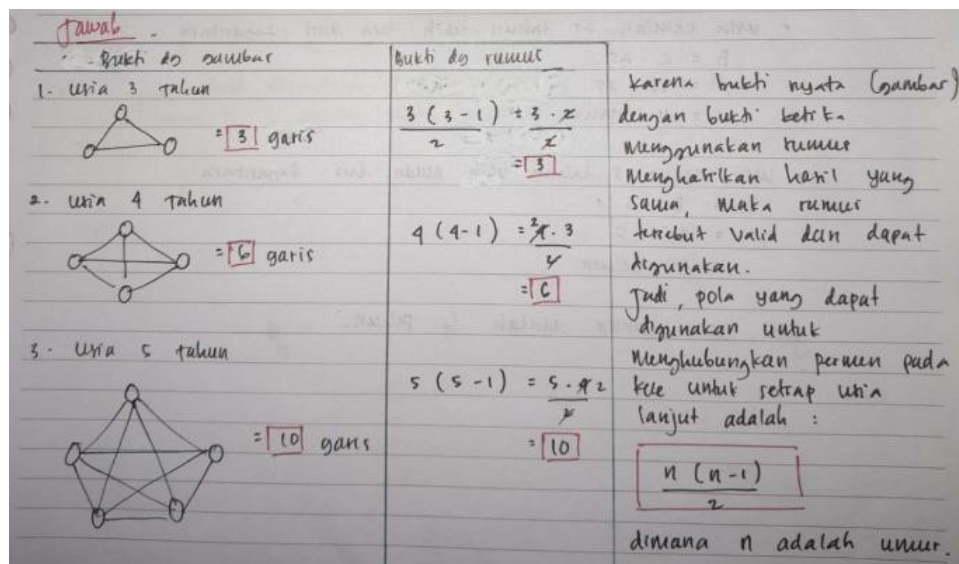 Jawab
Bukti dg gambar
1. Usia 3 Tahun
= 3 garis
2. Usia 4 Tahun
= 6 garis
3. Usia 5 tahun
= 10 garis
Bukti dg rumus
3 (3-1) = 3 . 2
2 2
= 3
4 (4-1) = 4 . 3
2
= 6
5 (5-1) = 5 . 4 2
2
= 10
karena bukti nyata (gambar)
dengan bukti ketika
menggunakan rumus
menghasilkan hasil yang
sama, maka rumus
tersebut valid dan dapat
digunakan.
Jadi, pola yang dapat
digunakan untuk
menghubungkan permen pada
kue untuk setiap usia
lanjut adalah :
n (n-1)
2
dimana n adalah umur.